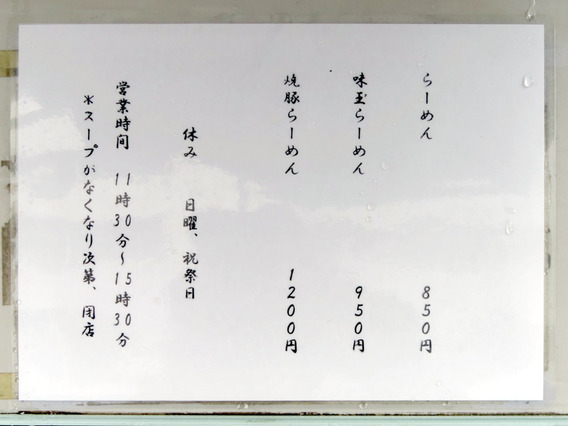 らーめん 850円
味玉らーめん 950円
焼豚らーめん 1200円
休み 日曜、祝祭日
営業時間 11時30分～15時30分
＊スープがなくなり次第、閉店